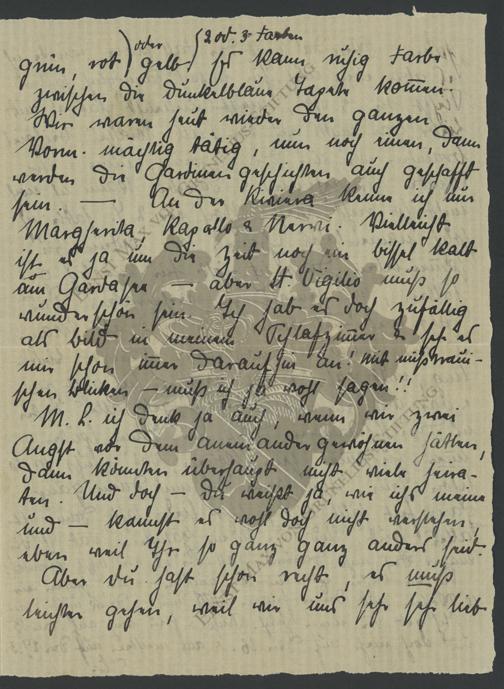 oder 2 od. 3 Farben
grün, rot) gelb es kann ruhig Farbe
zwischen die dunkelblaue Tapete kommen.
Wir waren heut wieder den ganzen
Vorm. mächtig tätig, nun noch einen, dann
werden die Gardinengeschichten auch geschafft
sein. — An der Riviera kenne ich nur
Margherita Rapallo & Nervi. Vielleicht
ist es ja um die Zeit noch ein bissel kalt
am Gardasee — aber St. Vigilio muß so
wunderschön sein. Ich hab es doch zufällig
als Bild in meinem Schlafzimmer & seh es
mir schon immer daraufhin an! mit mißtraui-
schen Blicken — muß ich ja wohl sagen!!
M. L. ich denk ja auch, wenn wir zwei
Angst vor dem aneinandergewöhnen hätten,
dann könnten überhaupt nicht viele heira-
ten. Und doch — Du weißt ja, wie ichs meine
und — kannst es wohl doch nicht verstehen,
eben weil Ihr so ganz ganz anders seid.
Aber du hast schon recht, es muß
leichter gehen, weil wir uns sehr sehr lieb